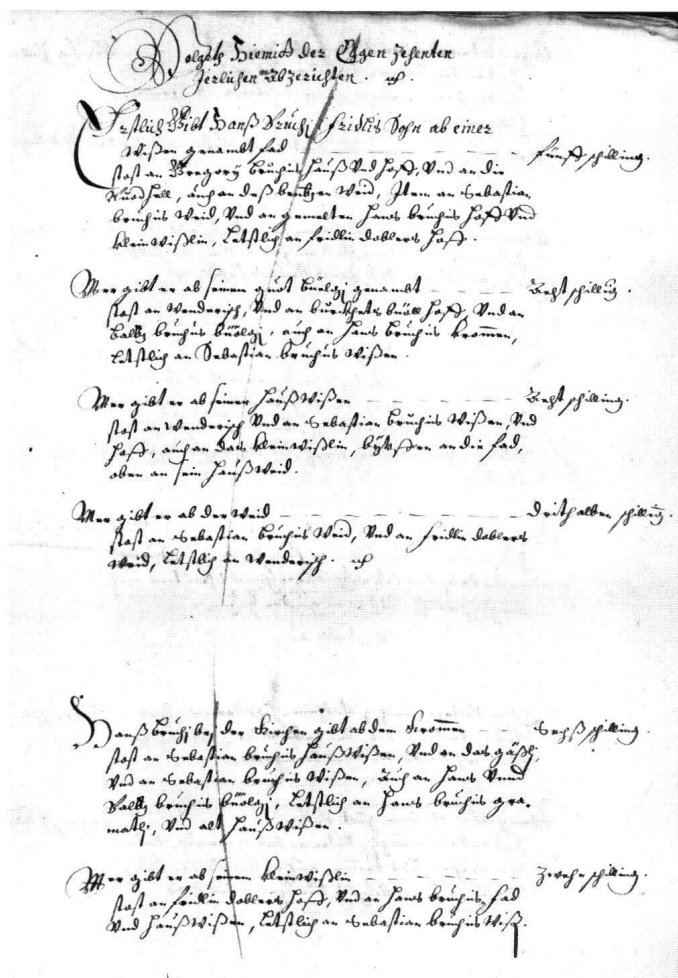 Volgeth Hiemit der Eigen zehenten
Jerlichen abZerichten.
Erstlich Gibt Hanß Bruchj fridlis Sohn ab einer
Wißen genambt fad — fünff schilling.
stost an Gregorÿ bruchis Hauß Vnd Hoff, Vnd an die
auch an deß Weid, Item an Sebastian
bruchis Weid, Vnd an gemelten Hans bruchis Hoff Vnd
klein wißlin, Letstlich an fridlin doblers Hoff.
Mer gibt er ab seinem guot büölgj genambt — Acht schilling.
stost an Wenderisch, Vnd an büöll Hoff, Vnd an
Baltz bruchis büölgj, auch an Hans bruchis krommen,
Letstlich an Sebastian bruchis Wißen.
Mer gibt er ab seinen Haußwißen — Acht schilling.
stost an Wenderisch Vnd an Sebastian bruchis Wißen, Vnd
Hoff, auch an das klein wißlin, an die fad,
oben an sein Hauß Weid.
Mer gibt er ab der Weid — drithalben schillig.
stost an Sebastian bruchis Weid, Vnd an fridlin doblers
Weid, Letstlich an Wenderisch.
Hanß bruchj bej der Kirchen gibt ab dem krommen — Sechß schilling.
stost an Sebastian bruchis Haußwißen, Vnd an das gäßlj,
Vnd an Sebastian bruchis Wißen, Auch an Hans Vnnd
Baltz bruchis büölgj, Letstlich an Hans bruchis gra-
matlj, Vnd alt Haußwißen.
Mer gibt er ab seinem klein wißlin — Zwehn schilling.
stost an fridlin doblers Hoff, Vnd an Hans bruchis fad
Vnd Haußwißen, Letstlich an Sebastian bruchis Wiß.